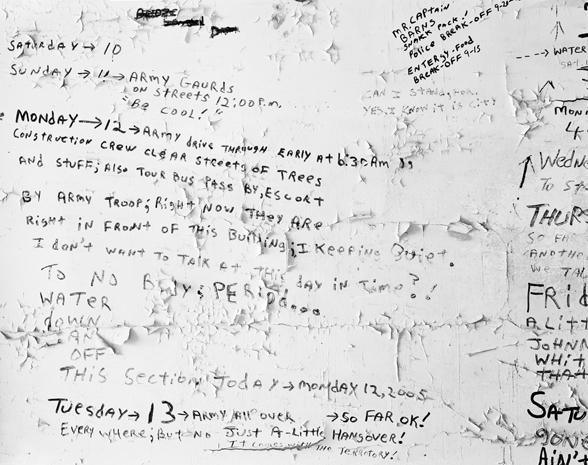 MR. CAPTAIN
BARNS
SNACK PACK!
POLICE BREAK-OFF 9-
ENTERSY-FOOD
BREAK-OFF 9-15
SATURDAY → 10
SUNDAY → 11 → ARMY GAURDS
ON STREETS 12:00 P.M.
"BE COOL!"
CAN I STAND, FOR,
YES, I KNOW IT IS CITY
MONDAY → 12 → ARMY DRIVE THROUGH EARLY AT 6:30 AM
CONSTRUCTION CREW CLEAR STREETS OF TREES
AND STUFF; ALSO TOUR BUS PASS BY, ESCORT
BY ARMY TROOP; RIGHT NOW THEY ARE
RIGHT IN FRONT OF THIS BUILDING; I KEEPING QUIET.
I DON'T WANT TO TALK AT THIS DAY IN TIME?!
TO NO BODY; PERIOD...
WATER
DOWN
AN
OFF
THIS SECTION TODAY → MONDAY 12, 2005
TUESDAY → 13 → ARMY ALL OVER → SO FAR, OK!
EVERYWHERE; BUT NO JUST A-LITTLE HANGOVER!
IT COMES WITH THE TERRITORY!
WATER
MON
4
WEDN
TO ST
THURS
SO FA
ANOTHE
WE TAL
FRID
A LITT
JOHNN
WHIT
THAT
SATU
GONE
AIN'T